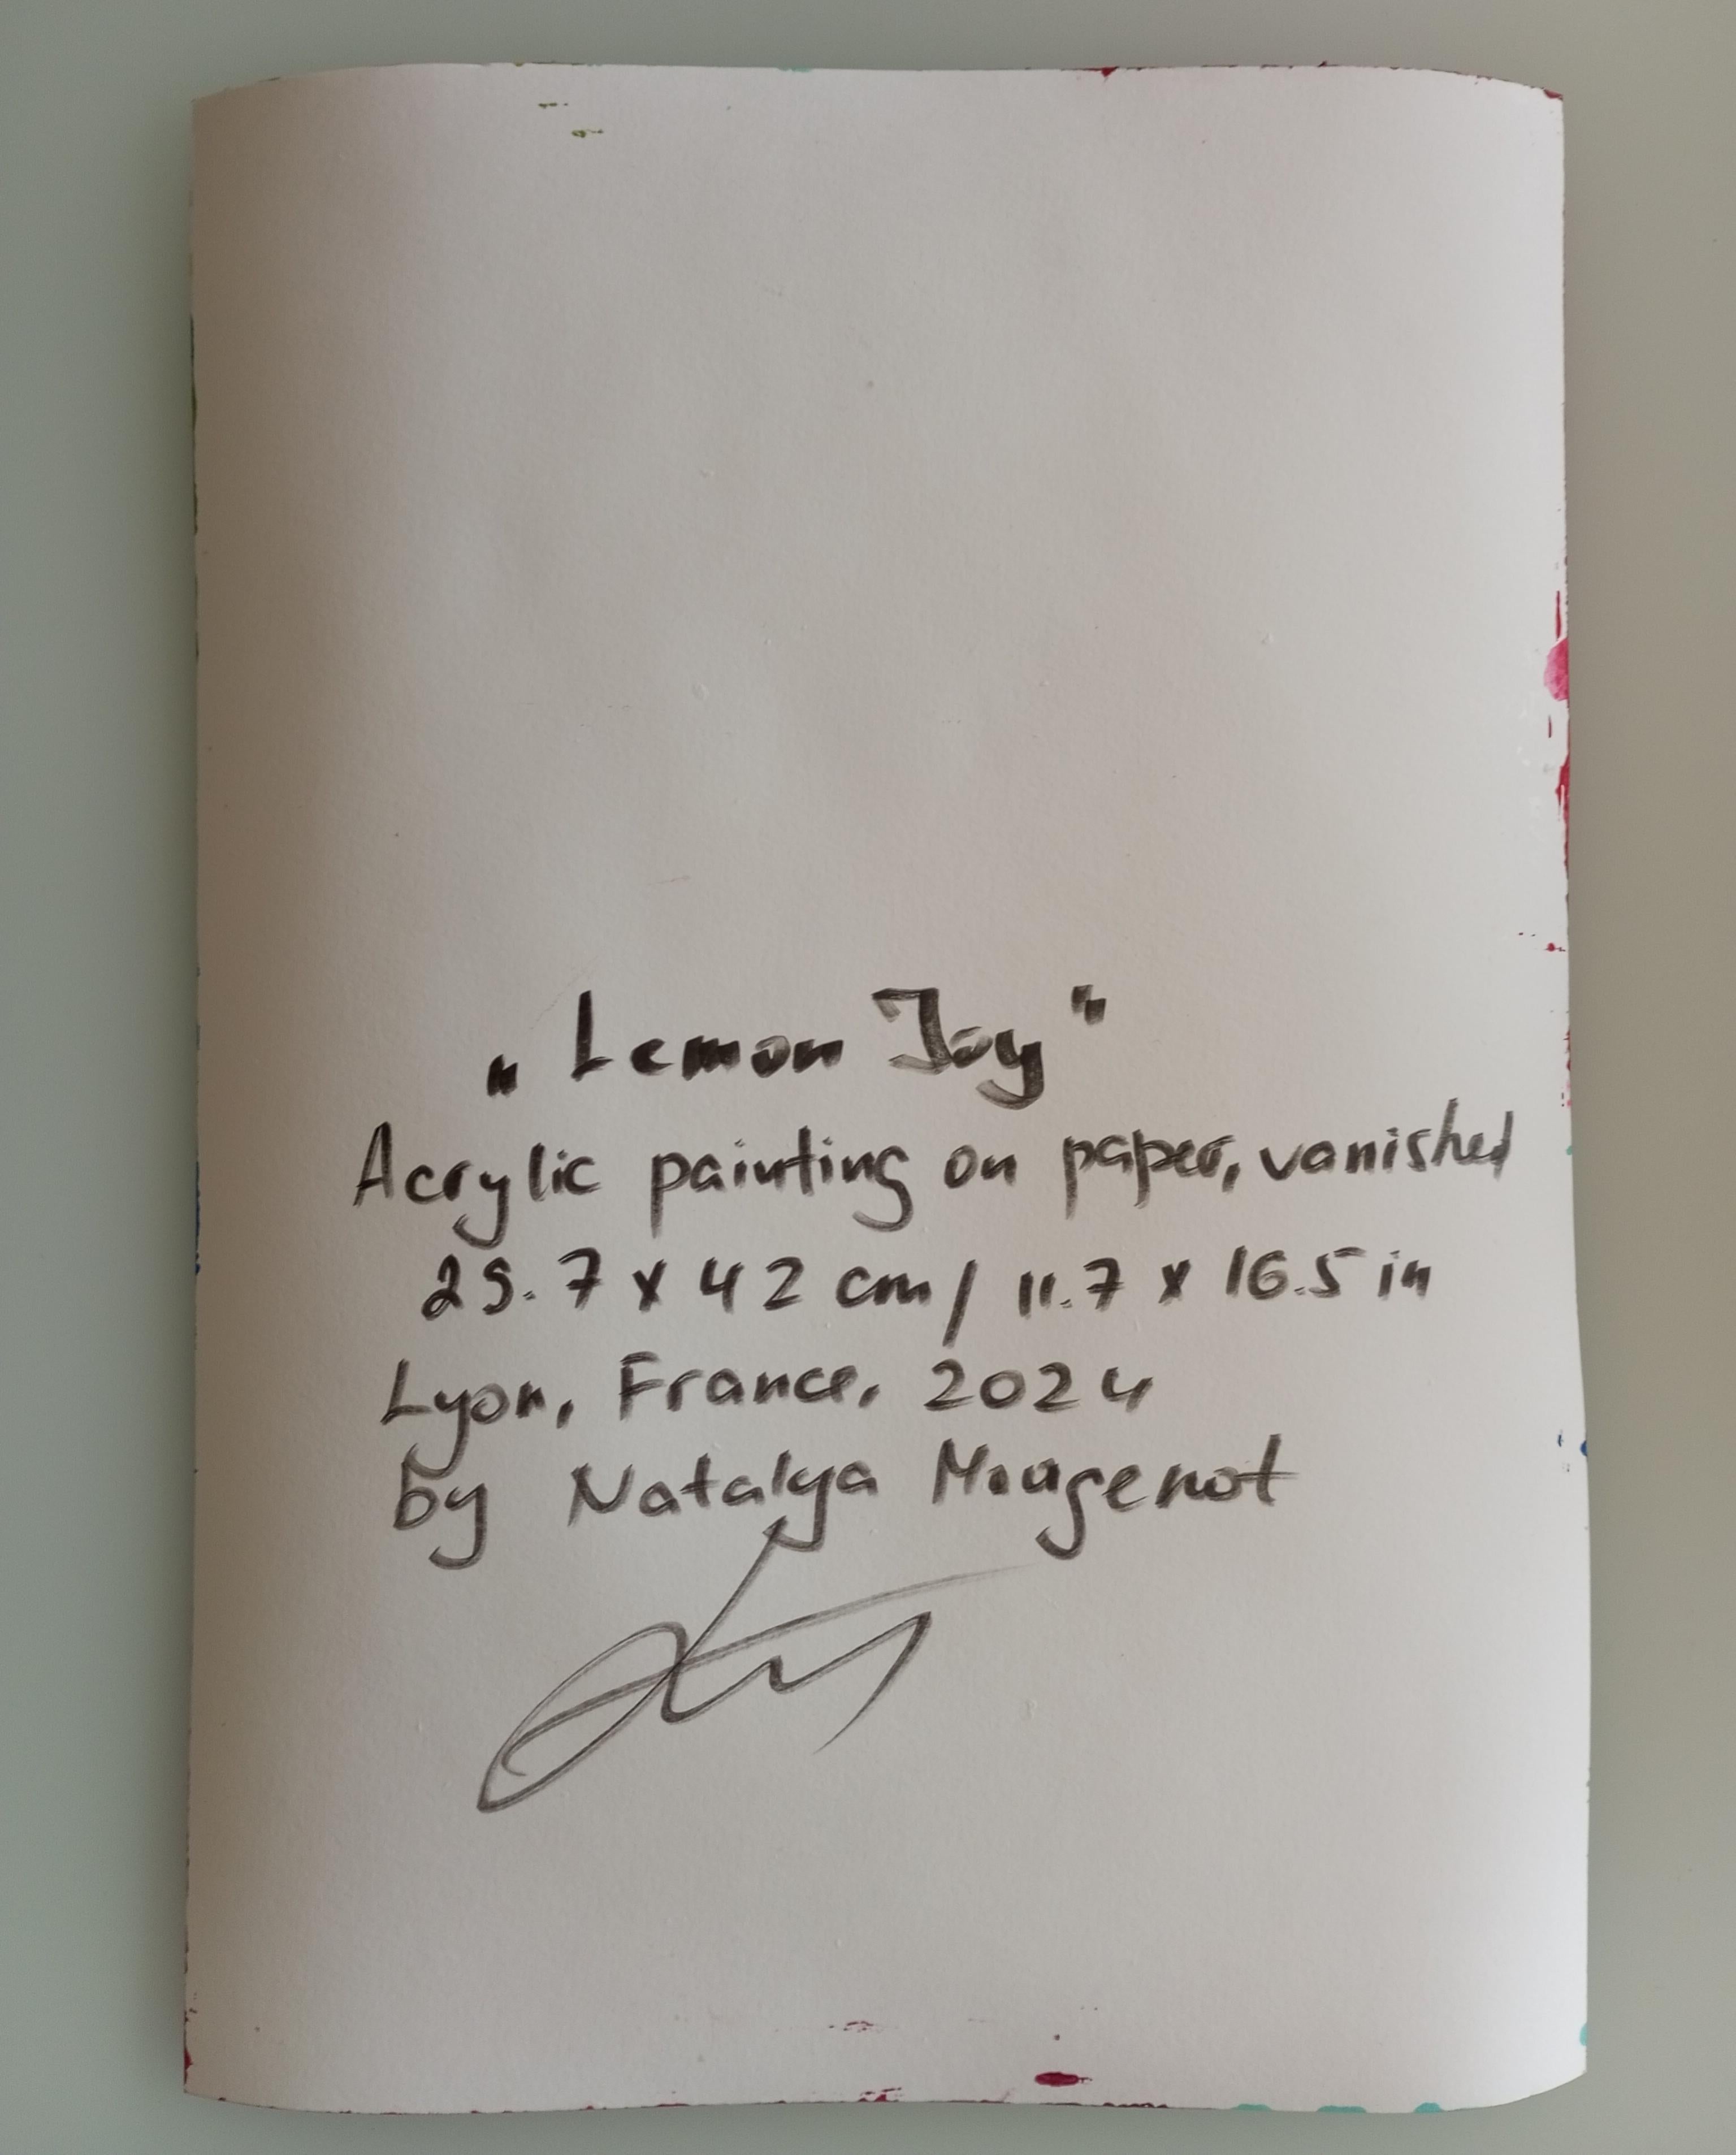 „Lemon Joy"
Acrylic painting on paper, vanished
29.7 x 42 cm / 11.7 x 16.5 in
Lyon, France, 2024
by Natalya Mougenot